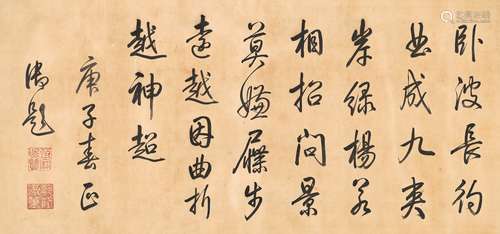 卧波長彴
曲成九夾
岸綠楊若
相招問景
莫嫌屧步
遠越因曲折
越神超
庚子春正
御題